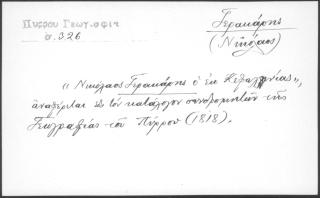 Πυρρου Γεωγραφια
σ. 326
Γερακάρης
(Νικόλαος)
"Νικόλαος Γερακάρης ὁ ἐκ Κεφαλληνίας",
ἀναφέρεται εἰς τὸν κατάλογον συνδρομητῶν τῆς
Γεωγραφίας τοῦ Πύρρου (1818).